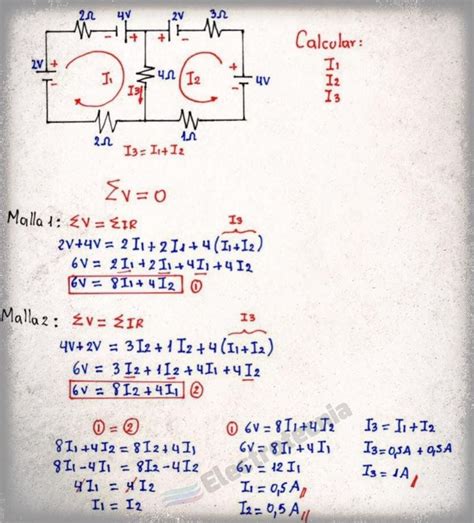 2Ω 4V 2V 3Ω
- + + -
2V + - I₁ 4Ω I₂ + - 4V
I3
2Ω 1Ω
I3 = I1 + I2
Calcular:
I1
I2
I3
ΣV = 0
Malla 1: ΣV = ΣIR I3
2V+4V = 2I1 + 2I1 + 4(I1+I2)
6V = 2I1 + 2I1 + 4I1 + 4I2
6V = 8I1 + 4I2 ①
Malla 2: ΣV = ΣIR I3
4V+2V = 3I2 + 1I2 + 4(I1+I2)
6V = 3I2 + 1I2 + 4I1 + 4I2
6V = 8I2 + 4I1 ②
① = ②
8I1 + 4I2 = 8I2 + 4I1
8I1 - 4I1 = 8I2 - 4I2
4I1 = 4I2
I1 = I2
① 6V = 8I1 + 4I2
6V = 8I1 + 4I1
6V = 12I1
I1 = 0,5A
I2 = 0,5A
I3 = I1 + I2
I3 = 0,5A + 0,5A
I3 = 1A